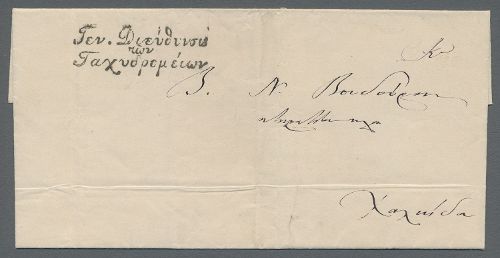 Γεν. Διεύθυνσις
των
Ταχυδρομείων
Κον
Β. Ν. Βουδούρην
Χαλκίδα